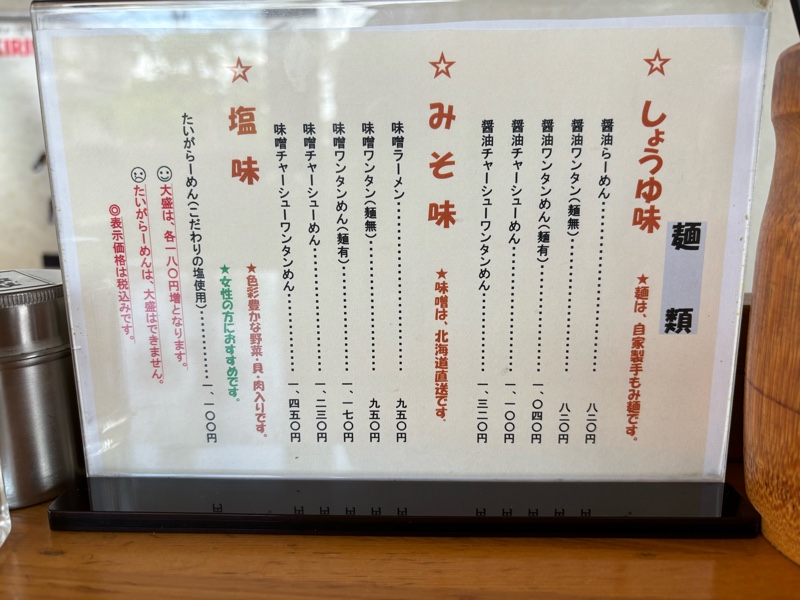 麺類
☆しょうゆ味
★麺は、自家製手もみ麺です。
醤油らーめん…………八二〇円
醤油ワンタン(麺無)…………八二〇円
醤油ワンタンめん(麺有)…………一、〇四〇円
醤油チャーシューめん…………一、一〇〇円
醤油チャーシューワンタンめん…………一、三二〇円
☆みそ味
★味噌は、北海道直送です.
味噌ラーメン…………九五〇円
味噌ワンタン(麺無)…………九五〇円
味噌ワンタンめん(麺有)…………一、一七〇円
味噌チャーシューめん…………一、二三〇円
味噌チャーシューワンタンめん…………一、四五〇円
☆塩味
★色彩豊かな野菜・貝・肉入りです。
★女性の方におすすめです。
たいがらーめん(こだわりの塩使用)…………一、一〇〇円
大盛は、各一八〇円増となります。
たいがらーめんは、大盛はできません。
◎表示価格は税込みです。
KIRIN